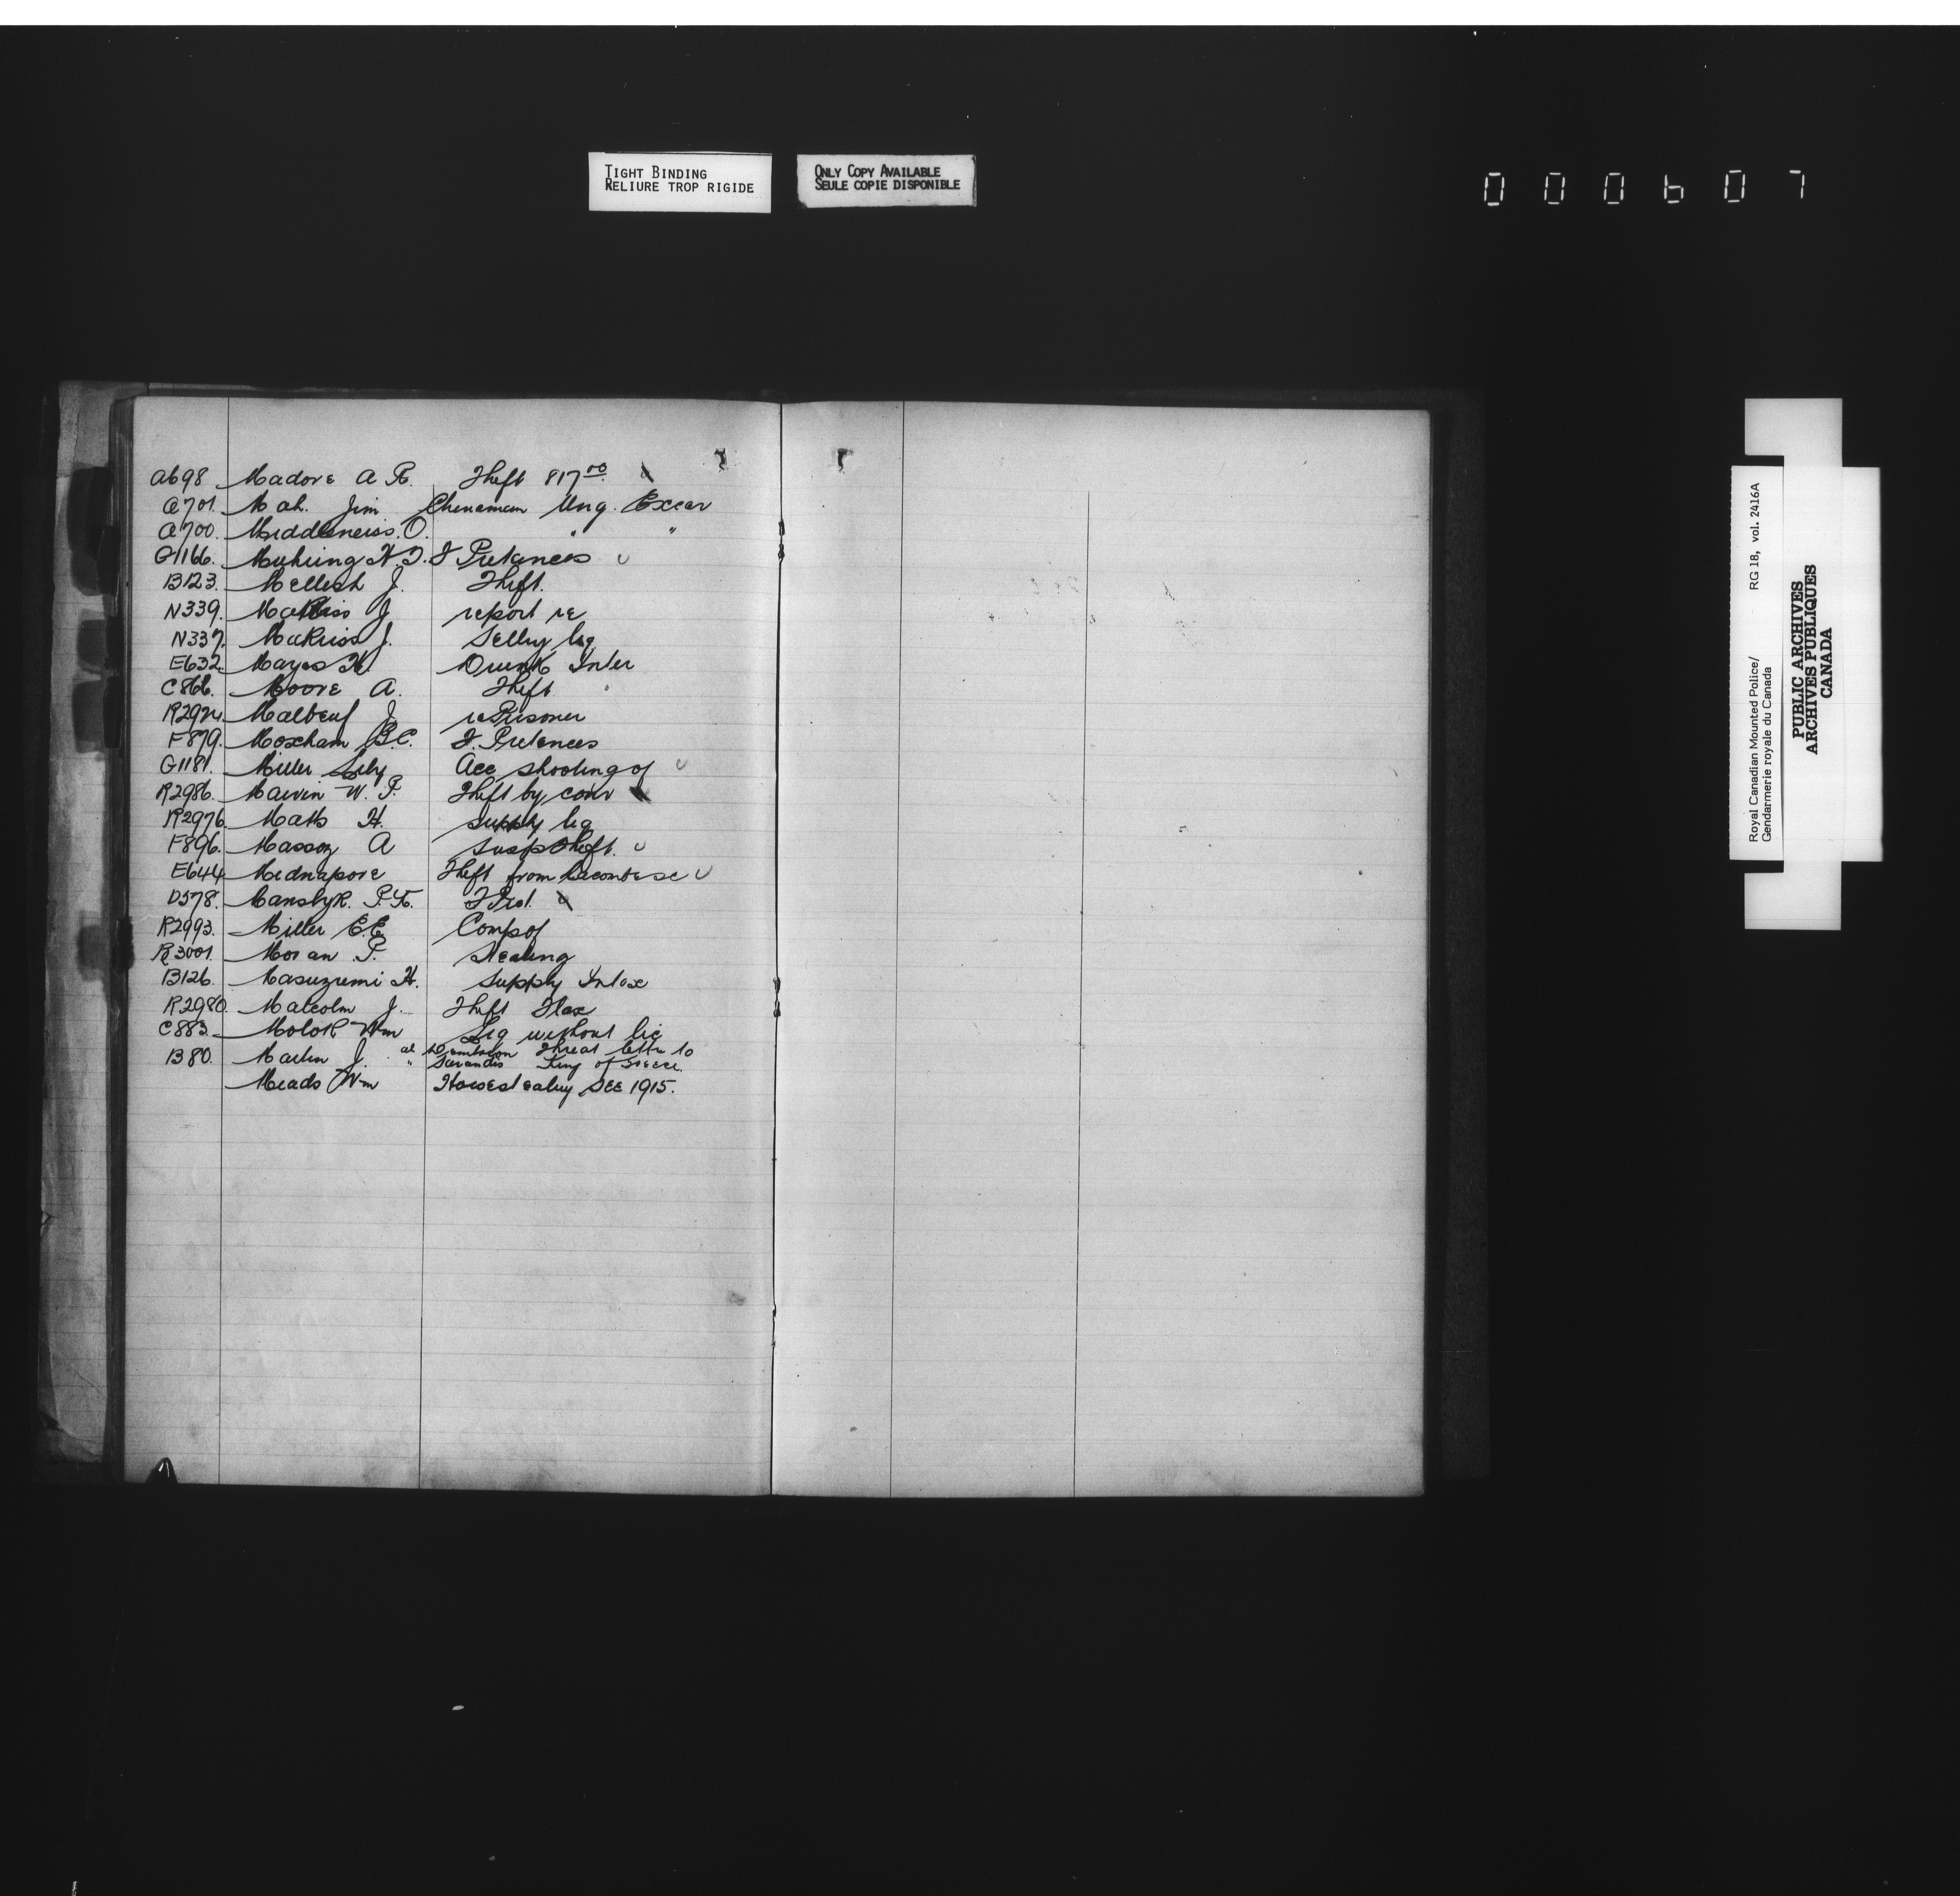 TIGHT BINDING
RELIURE TROP RIGIDE
ONLY COPY AVAILABLE
SEULE COPIE DISPONIBLE
000607
A698 Madore A R. Theft 817 00
A701. Mah. Jim Chenaman Ung. Excav
A700. Middleneiss. O. " "
G1166. Muhring H.T. F Pretences
B123. Mellish J. Theft.
N339. J report re
N337. Makriss J. Selling liq
E632. Mayes H Drunk Inter
C866. Moore A. Theft
R2924. Malbeuf J re Prisoner
F879. Moxham B.C. F. Pretences
G1181. Miller Lily Acc shooting of
R2986. Marvin W. P. Theft by conv
R2976. Matts H. supply liq
F896. Masson A susp theft.
E644. Midnapore Theft from Lacombe sc
D578. P. F Pret.
R2993. Miller E.E. Comp of
R3001. Moran P. Stealing
B126. Masuzumi H. supply Intox
R2980. Malcolm J. Theft Flax
C883. Molok Wm Liq without lic
B80. Martin J. al Threat letter to
" Sarandis King of Greece
Meads Wm Horsestealing SEE 1915.
Royal Canadian Mounted Police/ RG 18, vol. 2416A
Gendarmerie royale du Canada
PUBLIC ARCHIVES
ARCHIVES PUBLIQUES
CANADA